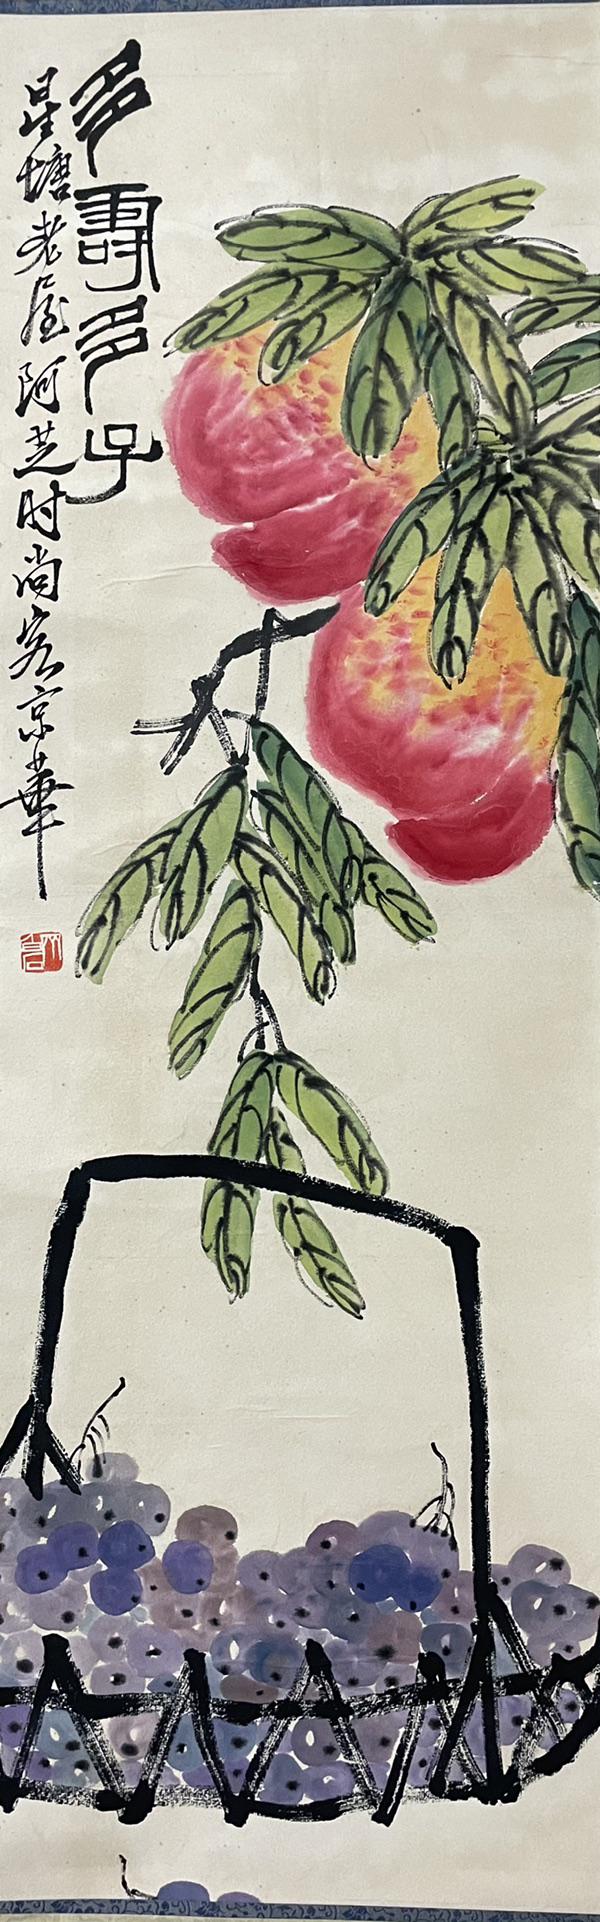 多壽多子
星塘老屋阿芝时尚客京華